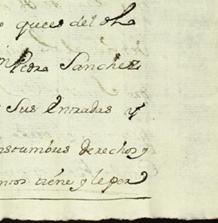 o que es del sL
Pedra Sanchez
Sus Entradas y
nstumbres derechos y
mros tiene y le per